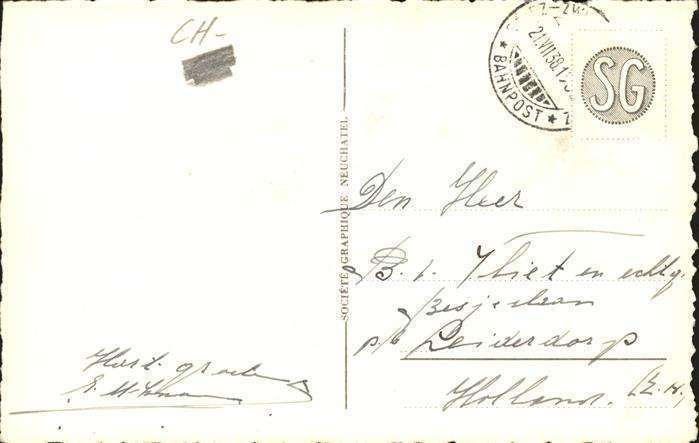 CH-
21.VII.38
* BAHNPOST *
SG
SOCIÉTÉ GRAPHIQUE NEUCHATEL
Den Heer
B. v. Vliet en echtg.
Leiderdorp
Holland. (Z.H.)
Hart. groeten